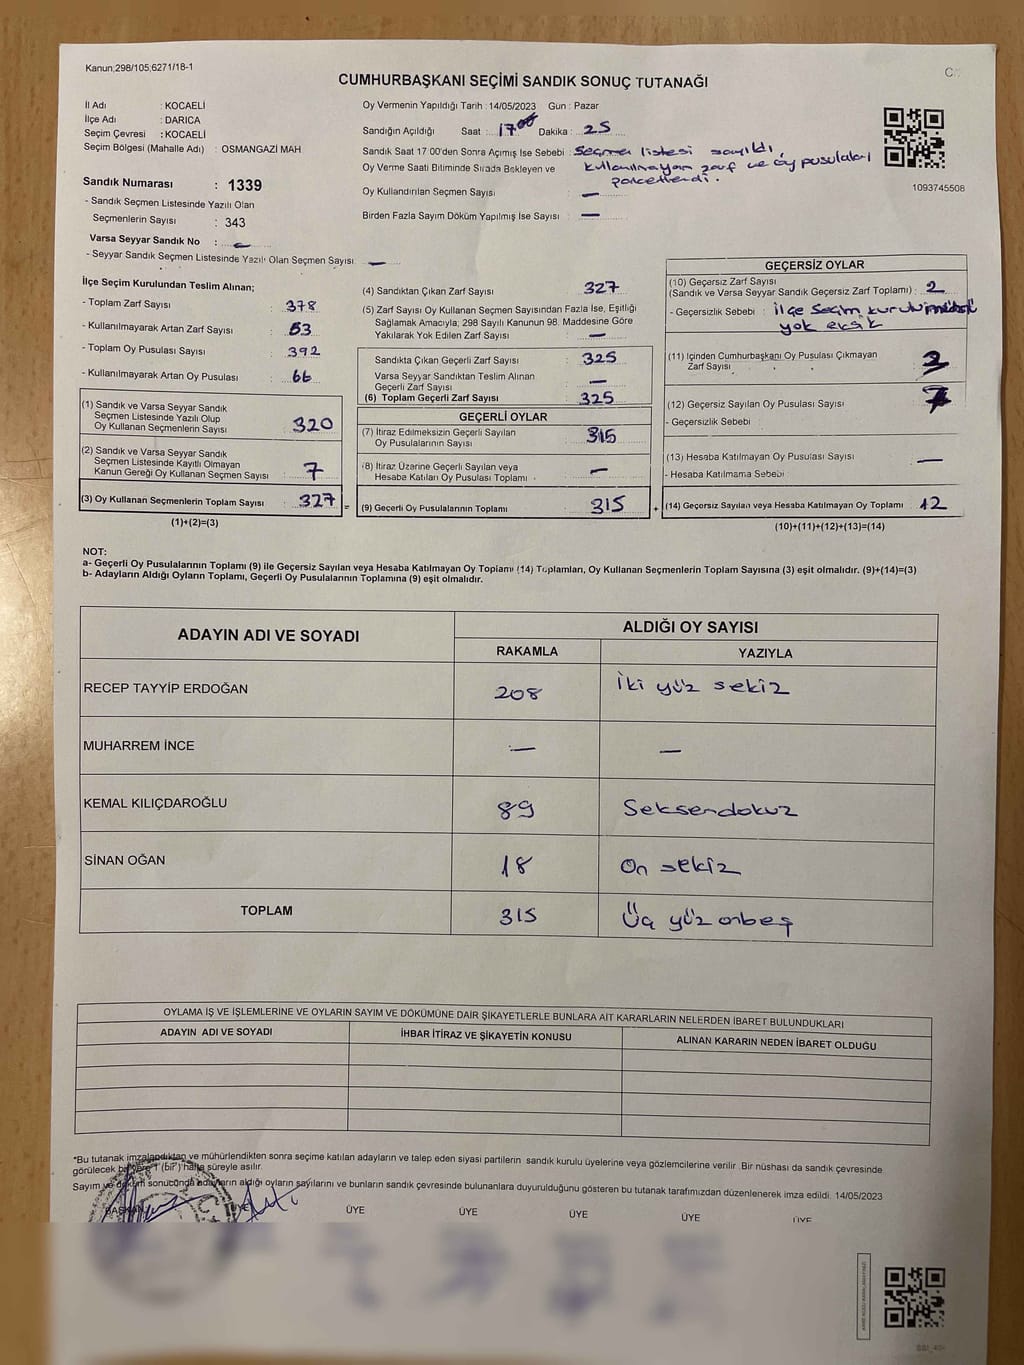 Kanun;298/105;6271/18-1
CUMHURBAŞKANI SEÇİMİ SANDIK SONUÇ TUTANAĞI
İl Adı : KOCAELİ
İlçe Adı : DARICA
Seçim Çevresi : KOCAELİ
Seçim Bölgesi (Mahalle Adı) : OSMANGAZİ MAH.
Sandık Numarası : 1339
- Sandık Seçmen Listesinde Yazılı Olan
Seçmenlerin Sayısı : 343
Varsa Seyyar Sandık No : —
- Seyyar Sandık Seçmen Listesinde Yazılı Olan Seçmen Sayısı : —
Oy Vermenin Yapıldığı Tarih : 14/05/2023 Gün : Pazar
Sandığın Açıldığı Saat : 17.00 Dakika : 25
Sandık Saat 17.00'den Sonra Açımış İse Sebebi : Seçmen listesi sayıldı,
Oy Verme Saati Bitiminde Sırada Bekleyen ve kullanılmayan zarf ve oy pusulaları
paketlendi.
Oy Kullandırılan Seçmen Sayısı : —
Birden Fazla Sayım Döküm Yapılmış İse Sayısı : —
1093745508
İlçe Seçim Kurulundan Teslim Alınan;
- Toplam Zarf Sayısı : 378
- Kullanılmayarak Artan Zarf Sayısı : 53
- Toplam Oy Pusulası Sayısı : 392
- Kullanılmayarak Artan Oy Pusulası : 66
(1) Sandık ve Varsa Seyyar Sandık
Seçmen Listesinde Yazılı Olup
Oy Kullanan Seçmenlerin Sayısı : 320
(2) Sandık ve Varsa Seyyar Sandık
Seçmen Listesinde Kayıtlı Olmayan
Kanun Gereği Oy Kullanan Seçmen Sayısı : 7
(3) Oy Kullanan Seçmenlerin Toplam Sayısı : 327
(1)+(2)=(3)
(4) Sandıktan Çıkan Zarf Sayısı : 327
(5) Zarf Sayısı Oy Kullanan Seçmen Sayısından Fazla İse, Eşitliği
Sağlamak Amacıyla; 298 Sayılı Kanunun 98. Maddesine Göre
Yakılarak Yok Edilen Zarf Sayısı : —
Sandıkta Çıkan Geçerli Zarf Sayısı : 325
Varsa Seyyar Sandıktan Teslim Alınan
Geçerli Zarf Sayısı : —
(6) Toplam Geçerli Zarf Sayısı : 325
GEÇERLİ OYLAR
(7) İtiraz Edilmeksizin Geçerli Sayılan
Oy Pusulalarının Sayısı : 315
(8) İtiraz Üzerine Geçerli Sayılan veya
Hesaba Katılan Oy Pusulası Toplamı : —
= (9) Geçerli Oy Pusulalarının Toplamı : 315
GEÇERSİZ OYLAR
(10) Geçersiz Zarf Sayısı
(Sandık ve Varsa Seyyar Sandık Geçersiz Zarf Toplamı) : 2
- Geçersizlik Sebebi : İlçe Seçim kurulu mührü
yok eksik
(11) İçinden Cumhurbaşkanı Oy Pusulası Çıkmayan
Zarf Sayısı : 3
(12) Geçersiz Sayılan Oy Pusulası Sayısı : 7
- Geçersizlik Sebebi :
(13) Hesaba Katılmayan Oy Pusulası Sayısı : —
- Hesaba Katılmama Sebebi :
+ (14) Geçersiz Sayılan veya Hesaba Katılmayan Oy Toplamı : 12
(10)+(11)+(12)+(13)=(14)
NOT:
a- Geçerli Oy Pusulalarının Toplamı (9) ile Geçersiz Sayılan veya Hesaba Katılmayan Oy Toplamı (14) Toplamları, Oy Kullanan Seçmenlerin Toplam Sayısına (3) eşit olmalıdır. (9)+(14)=(3)
b- Adayların Aldığı Oyların Toplamı, Geçerli Oy Pusulalarının Toplamına (9) eşit olmalıdır.
ADAYIN ADI VE SOYADI ALDIĞI OY SAYISI
RAKAMLA YAZIYLA
RECEP TAYYİP ERDOĞAN 208 İki yüz sekiz
MUHARREM İNCE — —
KEMAL KILIÇDAROĞLU 89 Seksendokuz
SİNAN OĞAN 18 On sekiz
TOPLAM 315 Üç yüz onbeş
OYLAMA İŞ VE İŞLEMLERİNE VE OYLARIN SAYIM VE DÖKÜMÜNE DAİR ŞİKAYETLERLE BUNLARA AİT KARARLARIN NELERDEN İBARET BULUNDUKLARI
ADAYIN ADI VE SOYADI İHBAR İTİRAZ VE ŞİKAYETİN KONUSU ALINAN KARARIN NEDEN İBARET OLDUĞU
*Bu tutanak imzalandıktan ve mühürlendikten sonra seçime katılan adayların ve talep eden siyasi partilerin sandık kurulu üyelerine veya gözlemcilerine verilir. Bir nüshası da sandık çevresinde
görülecek bir yere 1 (bir) hafta süreyle asılır.
Sayım ve döküm sonucunda adayların aldığı oyların sayılarını ve bunların sandık çevresinde bulunanlara duyurulduğunu gösteren bu tutanak tarafımızdan düzenlenerek imza edildi. 14/05/2023
BAŞKAN ÜYE ÜYE ÜYE ÜYE ÜYE ÜYE